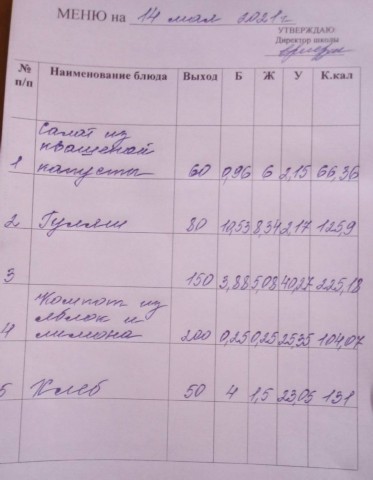 МЕНЮ на 14 мая 2021г
УТВЕРЖДАЮ:
Директор школы
№ п/п Наименование блюда Выход Б Ж У К.кал
Салат из
квашеной
1 капусты 60 0,96 6 2,15 66,36
2 Гуляш 80 10,53 8,34 2,17 125,9
3 150 3,88 5,08 40,27 225,18
Компот из
яблок и
4 лимона 200 0,25 0,25 25,35 104,07
5 Хлеб 50 4 1,5 23,05 131